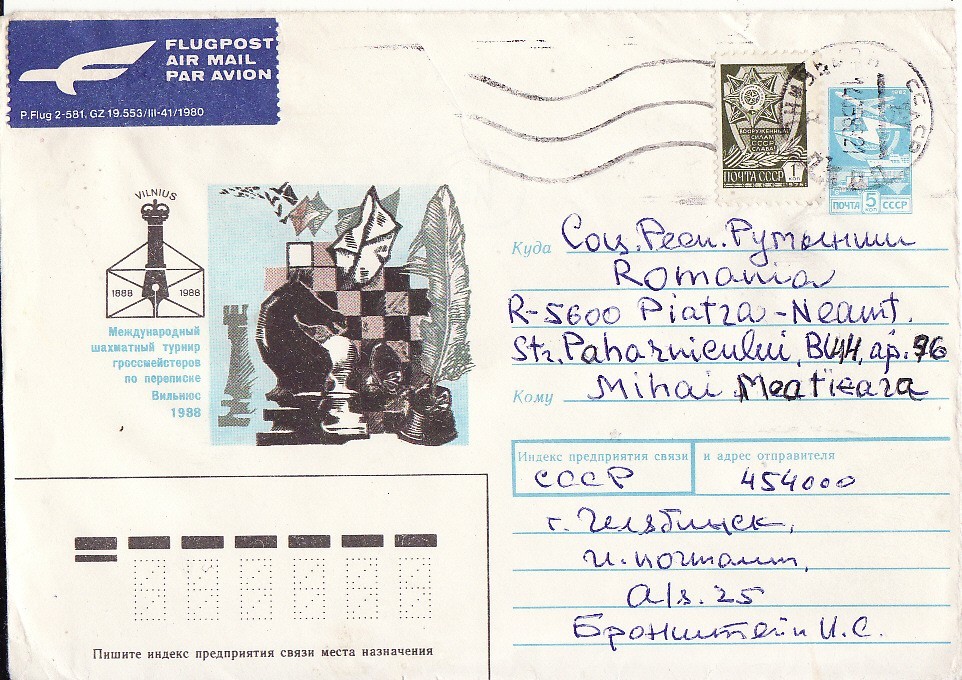 FLUGPOST
AIR MAIL
PAR AVION
P.Flug 2-581, GZ 19.553/III-41/1980
ВООРУЖЕННЫМ
СИЛАМ
СССР
СЛАВА!
ПОЧТА СССР 1 КОП
1976
1982
ПОЧТА 5 КОП СССР
VILNIUS
1888 1988
Международный
шахматный турнир
гроссмейстеров
по переписке
Вильнюс
1988
Куда Соц. Респ. Румынии
Romania
R-5600 Piatra-Neamt.
Str. Paharnicului, B44, ap. 96
Кому Mihai
Индекс предприятия связи и адрес отправителя
СССР 454000
г. Челябинск,
п. почтамт,
а/я. 25
Бронштейн И.С.
Пишите индекс предприятия связи места назначения